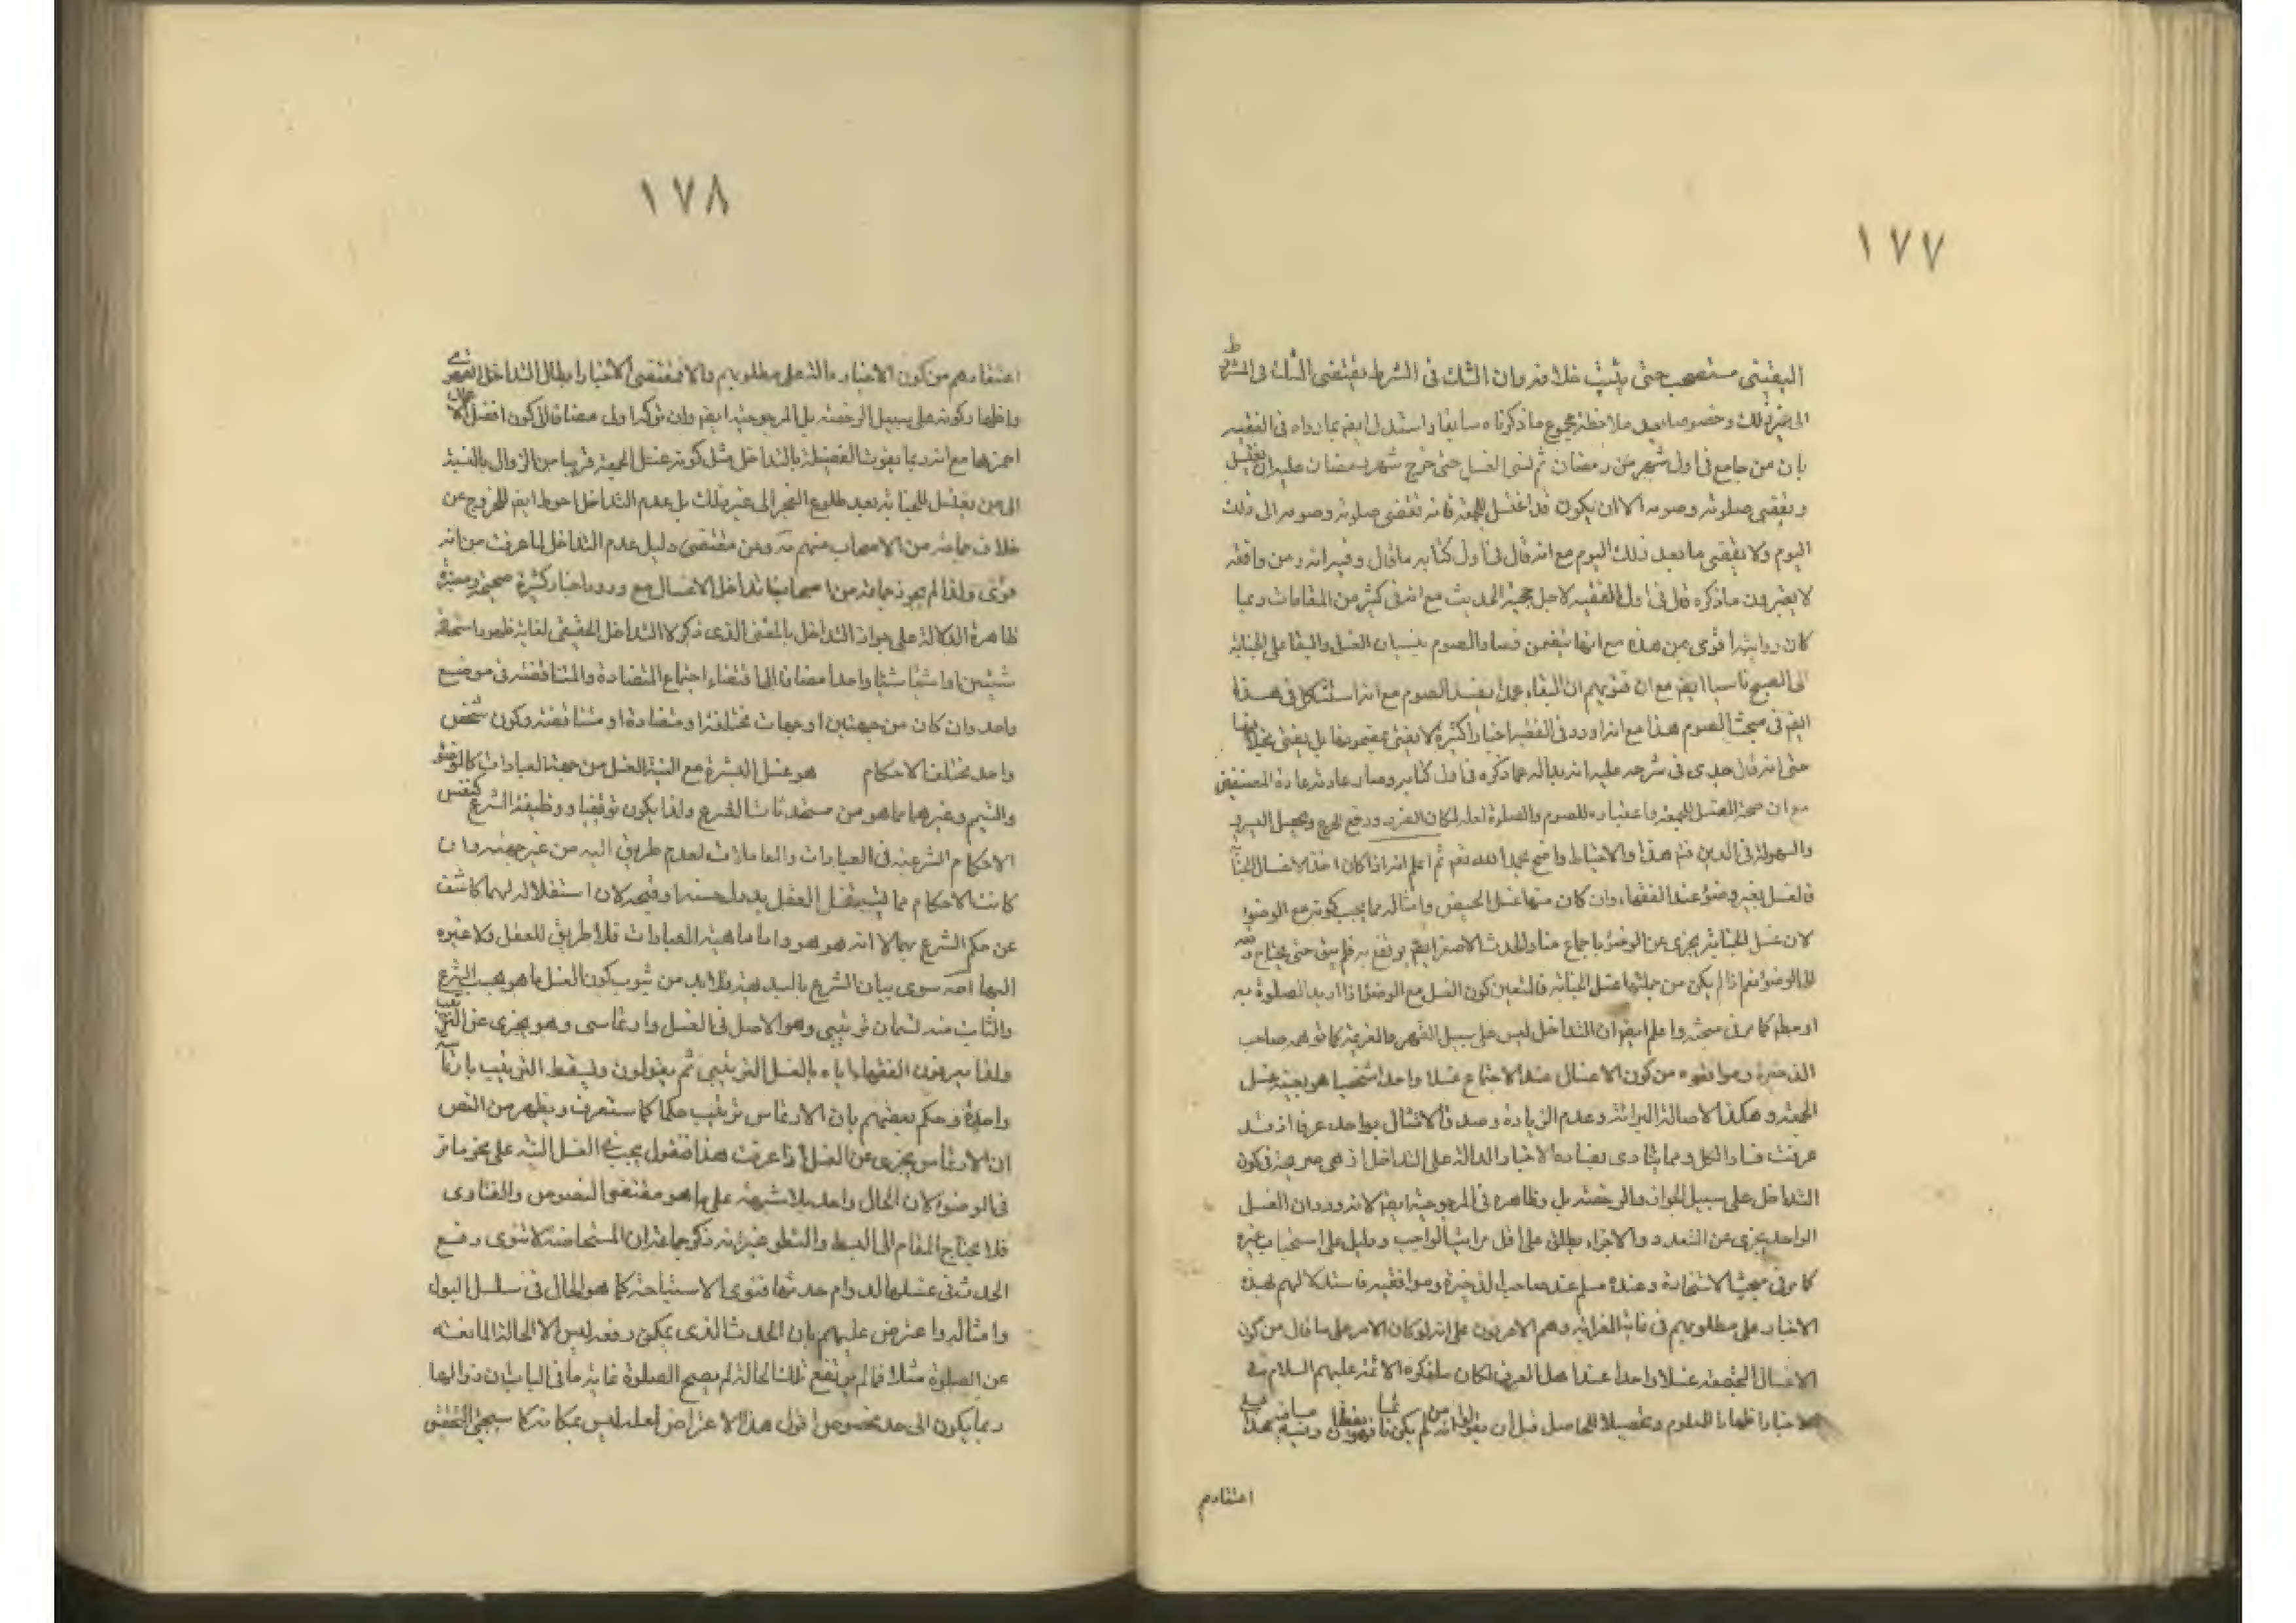 ١٧٧
اليقيني مستصحب حتى يثبت خلافه وان الشك في الشرط يقتضي الشك في المشروط
الى غير ذلك وخصوصا بعد ملاحظة مجموع ما ذكرناه سابقا واستدل ايضا بما رواه في الفقيه
بان من جامع في اول شهر من رمضان ثم نسى الغسل حتى خرج شهر رمضان عليه ان يغتسل
ويقضي صلوته وصومه الا ان يكون قد اغتسل للجمعة فانه يقضى صلوته وصومه الى ذلك
اليوم ولا يقضي ما بعد ذلك اليوم مع انه قال في اول كتابه ما قال وفيه انه ومن وافقه
لا يعتبرون ما ذكره قال في اول الفقيه لاجل حجية الحديث مع انه في كثير من المقامات ربما
كان روايته اقوى من هذه مع انها تتضمن فساد الصوم بنسيان الغسل والبقاء على الجنابة
الى الصبح ناسيا ايضا مع ان فتويهم ان البقاء عمدا يفسد الصوم مع انه استشكل في هذا
ايضا في مبحث الصوم هذا مع انه اورد في الفقيه اخبارا كثيرة لا يفتى بمضمونها بل يفتى بخلافها
حتى انه قال جدي في شرحه عليه انه بدا له عما ذكره في اول كتابه وصار عادته عادة المصنفين
مع ان صحة المغتسل للجمعة باعتباره للصوم والصلوة لعله لمكان العذر ورفع الحرج وتحصيل اليسر
والسهولة في الدين فتم هذا والاحتياط واضح بحمد الله تعم ثم اعلم انه اذا كان احد الاغسال الجنابة
فالغسل بغير وضوء عند الفقهاء وان كان منها غسل الحيض وامثاله مما يجب كونه مع الوضوء
لان غسل الجنابة يجزى عن الوضوء باجماع منا والحدث الاصغر ايضا يرتفع به فلم يبق حتى يحتاج
الى الوضوء نعم اذا لم يكن من جملتها غسل الجنابة فالمتعين كون الغسل مع الوضوء اذا اريد الصلوة به
او مطم كما مر في مبحثه واعلم ايضا ان التداخل ليس على سبيل القهر والعزيمة كما توهمه صاحب
الذخيرة وموافقوه من كون الاغسال عند الاجتماع غسلا واحدا شخصيا هو بعينه غسل
الجمعة وهكذا لاصالة البرائة وعدم الزيادة وصدق الامتثال بواحد عرفا اذ قد
عرفت فساد الكل ومما ينادى بفساده الاخبار الدالة على التداخل اذ هى صريحة في كون
التداخل على سبيل الجواز والرخصة بل وظاهره في المرجوحية ايضا لانه ورد ان الغسل
الواحد يجزى عن المتعدد والاجزاء يطلق على اقل مراتب الواجب ودليل على استحباب غيره
كما مر في مبحث الاستحاضة وعنده مسلم عند صاحب الذخيرة وموافقيه فاستدلالهم بهذه
الاخبار على مطلوبهم في غاية الغرابة وهم الاعرفون على انه لو كان الامر على ما قال من كون
الاغسال المجتمعة غسلا واحدا عند اهل العرف لكان ما ذكره الائمة عليهم السلام في
الاخبار اظهارا للمعلوم وتحصيلا للحاصل قبل ان
اعتقادهم
١٧٨
اعتقادهم من كون الاخبار دالة على مطلوبهم والا فمقتضى الاخبار ابطال التداخل القهري
واظهار كونه على سبيل الرخصة بل المرجوحية ايضا وان تركه اولى مضافا الى كون افضل الاعمال
احمزها مع انه ربما يفوت الفضيلة بالتداخل مثل كونه غسل الجمعة قريبا من الزوال بالنسبة
الى من يغتسل للجنابة بعد طلوع الفجر الى غير ذلك بل عدم التداخل احوط ايضا للخروج عن
خلاف جماعة من الاصحاب منهم ره وعن مقتضى دليل عدم التداخل لما عرفت من انه
قوى ولذا لم يجوز جماعة من اصحابنا تداخل الاغسال مع ورود اخبار كثيرة صحيحة ومعتبرة
ظاهرة الدلالة على جواز التداخل بالمعنى الذي ذكر لا التداخل الحقيقي لغاية ظهور استحالة
شيئين او اشياء شيئا واحدا مضافا الى اقتضاء اجتماع المتضادة والمتناقضة في موضع
واحد وان كان من جهتين او جهات مختلفة او متضادة او متناقضة وكون شخص
واحد مختلف الاحكام هو غسل البشرة مع النية الغسل من جهة العبادات كالوضوء
والتيمم وغيرهما مما هو من مستحدثات الشرع ولذا يكون توقيفيا ووظيفة الشرع كنفس
الاحكام الشرعية في العبادات والمعاملات لعدم طريق اليه من غير جهته وان
كانت الاحكام مما يستقل العقل بدرك حسنه وقبحه لان استقلاله لهما كاشف
عن حكم الشرع بهما لا انه هو هو واما ماهية العبادات فلا طريق للعقل ولا غيره
اليها اصه سوى بيان الشرع بالبديهة فلا بد من ثبوت كون الغسل ما هو بحسب الشرع
والثابت منه قسمان ترتيبي وهو الاصل في الغسل وارتماسى وهو يجزى عن الترتيب
ولذا يعرفون الفقهاء اياه بالغسل الترتيبي ثم يقولون ويسقط الترتيب بارتماسه
واحدة وحكم بعضهم بان الارتماس ترتيب حكما كما ستعرف ويظهر من النص
ان الارتماس يجزى عن الغسل اذا عرفت هذا فنقول يجب في الغسل النية على نحو ما مر
في الوضوء لان الحال واحد بلا شبهة على ما هو مقتضى النصوص والفتاوى
فلا يحتاج المقام الى البسط والتطو غير انه ذكر جماعة ان المستحاضة لا تنوى رفع
الحدث في غسلها لدوام حدثها فتنوى الاستباحة كما هو الحال في سلسل البول
وامثاله واعترض عليهم بان الحدث الذى يمكن رفعه ليس الا الحالة المانعة
عن الصلوة مثلا فما لم يرتفع تلك الحالة لم يصح الصلوة غاية ما في الباب ان زوالها
ربما يكون الى حد مخصوص اقول هذا الاعتراض لعله ليس بمكانه كما سيجئ التحقيق